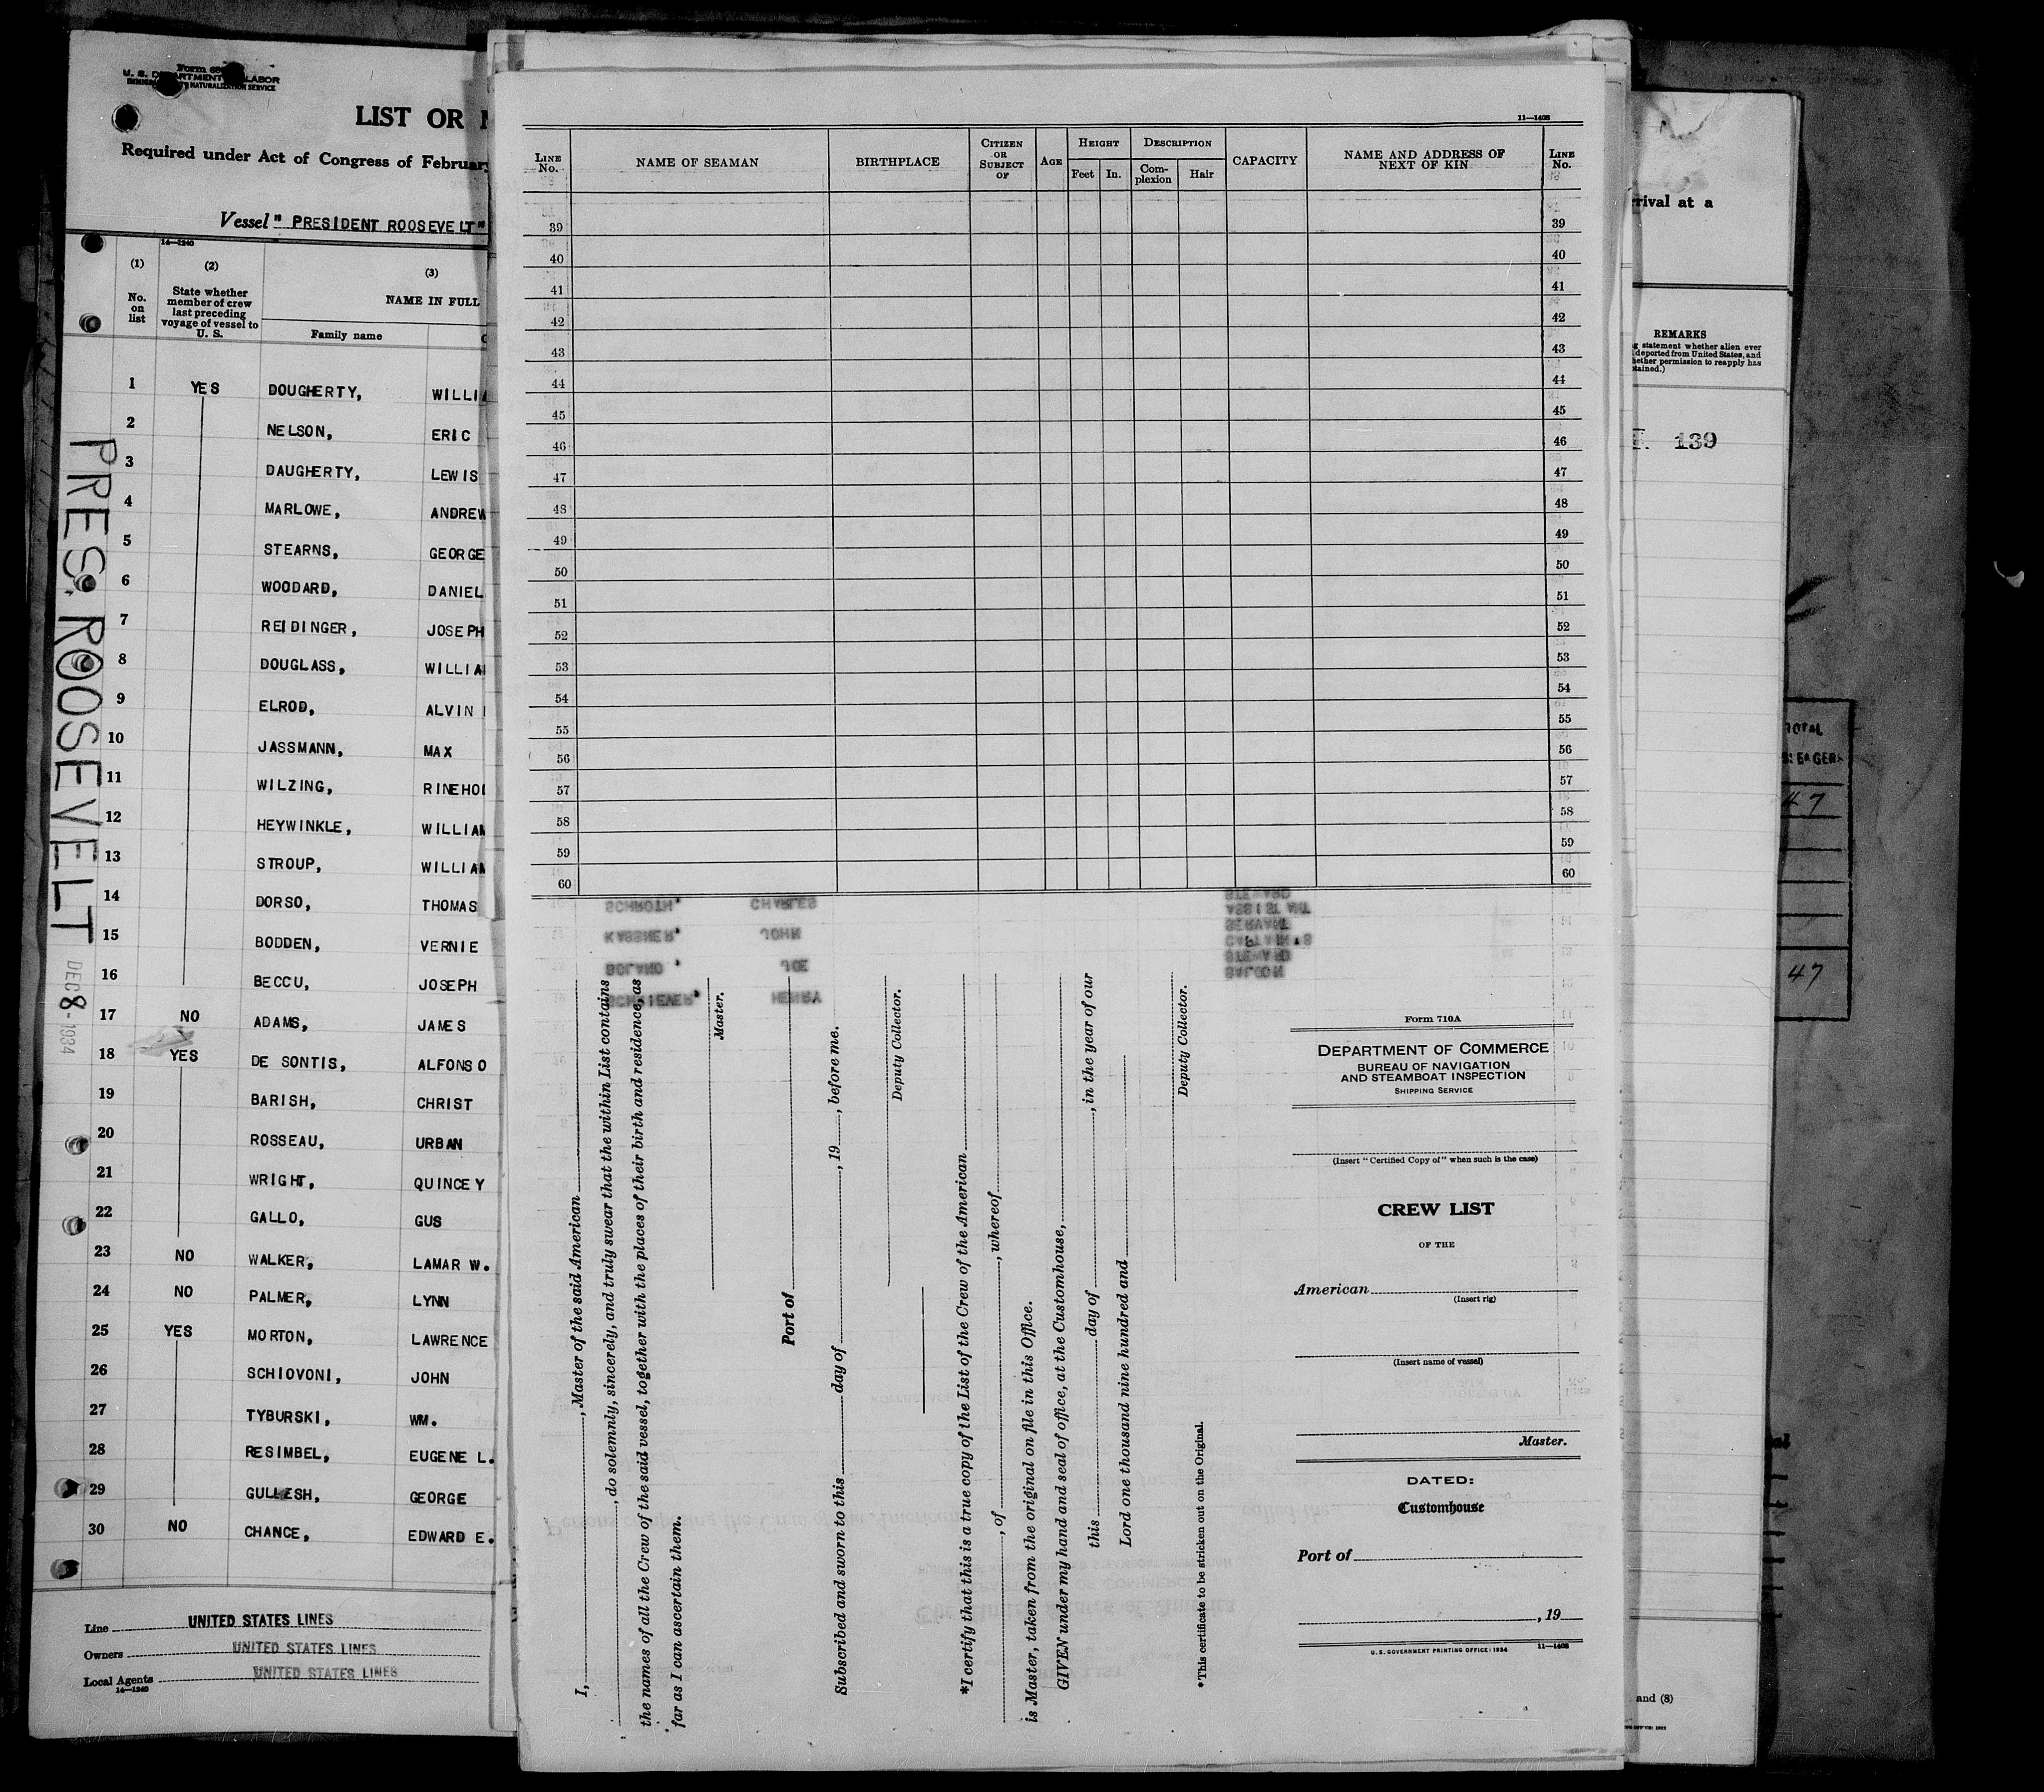 Form 68
U. S. DEPARTMENT LABOR
NATURALIZATION SERVICE
LIST OR
Required under Act of Congress of February
Vessel " PRESIDENT ROOSEVELT "
14—1240
(1) (2) (3)
No. on list
State whether member of crew last preceding voyage of vessel to U. S.
NAME IN FULL
Family name
1 YES DOUGHERTY, WILLIA
2 NELSON, ERIC
3 DAUGHERTY, LEWIS
4 MARLOWE, ANDREW
5 STEARNS, GEORGE
6 WOODARD, DANIEL
7 REIDINGER, JOSEPH
8 DOUGLASS, WILLIA
9 ELROD, ALVIN
10 JASSMANN, MAX
11 WILZING, RINEHO
12 HEYWINKLE, WILLIAM
13 STROUP, WILLIAM
14 DORSO, THOMAS
15 BODDEN, VERNIE
16 BECCU, JOSEPH
17 NO ADAMS, JAMES
18 YES DE SONTIS, ALFONSO
19 BARISH, CHRIST
20 ROSSEAU, URBAN
21 WRIGHT, QUINCEY
22 GALLO, GUS
23 NO WALKER, LAMAR W.
24 NO PALMER, LYNN
25 YES MORTON, LAWRENCE
26 SCHIOVONI, JOHN
27 TYBURSKI, WM.
28 RESIMBEL, EUGENE L.
29 GULLESH, GEORGE
30 NO CHANCE, EDWARD E.
PRES. ROOSEVELT
DEC 8 - 1934
Line UNITED STATES LINES
Owners UNITED STATES LINES
Local Agents UNITED STATES LINES
14—1240
11—1408
LINE No. NAME OF SEAMAN BIRTHPLACE CITIZEN OR SUBJECT OF AGE HEIGHT DESCRIPTION CAPACITY NAME AND ADDRESS OF NEXT OF KIN LINE No.
Feet In. Complexion Hair
39 39
40 40
41 41
42 42
43 43
44 44
45 45
46 46
47 47
48 48
49 49
50 50
51 51
52 52
53 53
54 54
55 55
56 56
57 57
58 58
59 59
60 60
SCHROTH, CHARLES
KASSNER, JOHN
BOLAND, JOE
HENRY
STEWARD
ASSISTANT
SERVANT
CAPTAIN'S
STEWARD
SALOON
I, , Master of the said American
, do solemnly, sincerely, and truly swear that the within List contains
the names of all the Crew of the said vessel, together with the places of their birth and residence, as
far as I can ascertain them.
Master.
Port of
Subscribed and sworn to this day of , 19 , before me.
Deputy Collector.
*I certify that this is a true copy of the List of the Crew of the American
, of , whereof
is Master, taken from the original on file in this Office.
GIVEN under my hand and seal of office, at the Customhouse,
this day of , in the year of our
Lord one thousand nine hundred and
Deputy Collector.
*This certificate to be stricken out on the Original.
Form 710A
DEPARTMENT OF COMMERCE
BUREAU OF NAVIGATION
AND STEAMBOAT INSPECTION
SHIPPING SERVICE
(Insert "Certified Copy of" when such is the case)
CREW LIST
OF THE
American
(Insert rig)
(Insert name of vessel)
Master.
DATED:
Customhouse
Port of
, 19
U. S. GOVERNMENT PRINTING OFFICE: 1934 11—1408
rival at a
REMARKS
statement whether alien ever
deported from United States, and
whether permission to reapply has
139
and (8)
TOTAL
47
47